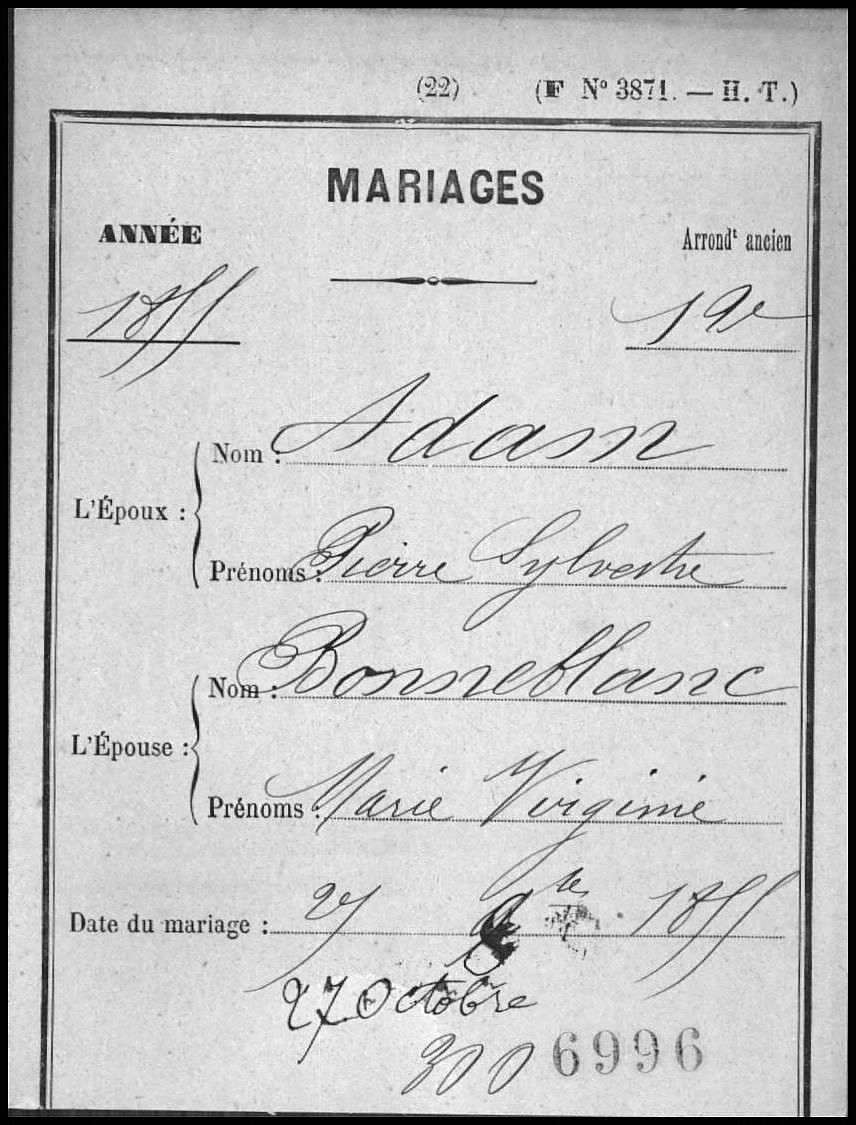 (22) (F Nº 3871. — H. T.)
MARIAGES
ANNÉE Arrondt ancien
1855 12e
L'Époux :
Nom : Adam
Prénoms : Pierre Sylvestre
L'Épouse :
Nom : Bonneblanc
Prénoms : Marie Virginie
Date du mariage : 27 8bre 1855
27 Octobre
300 6996